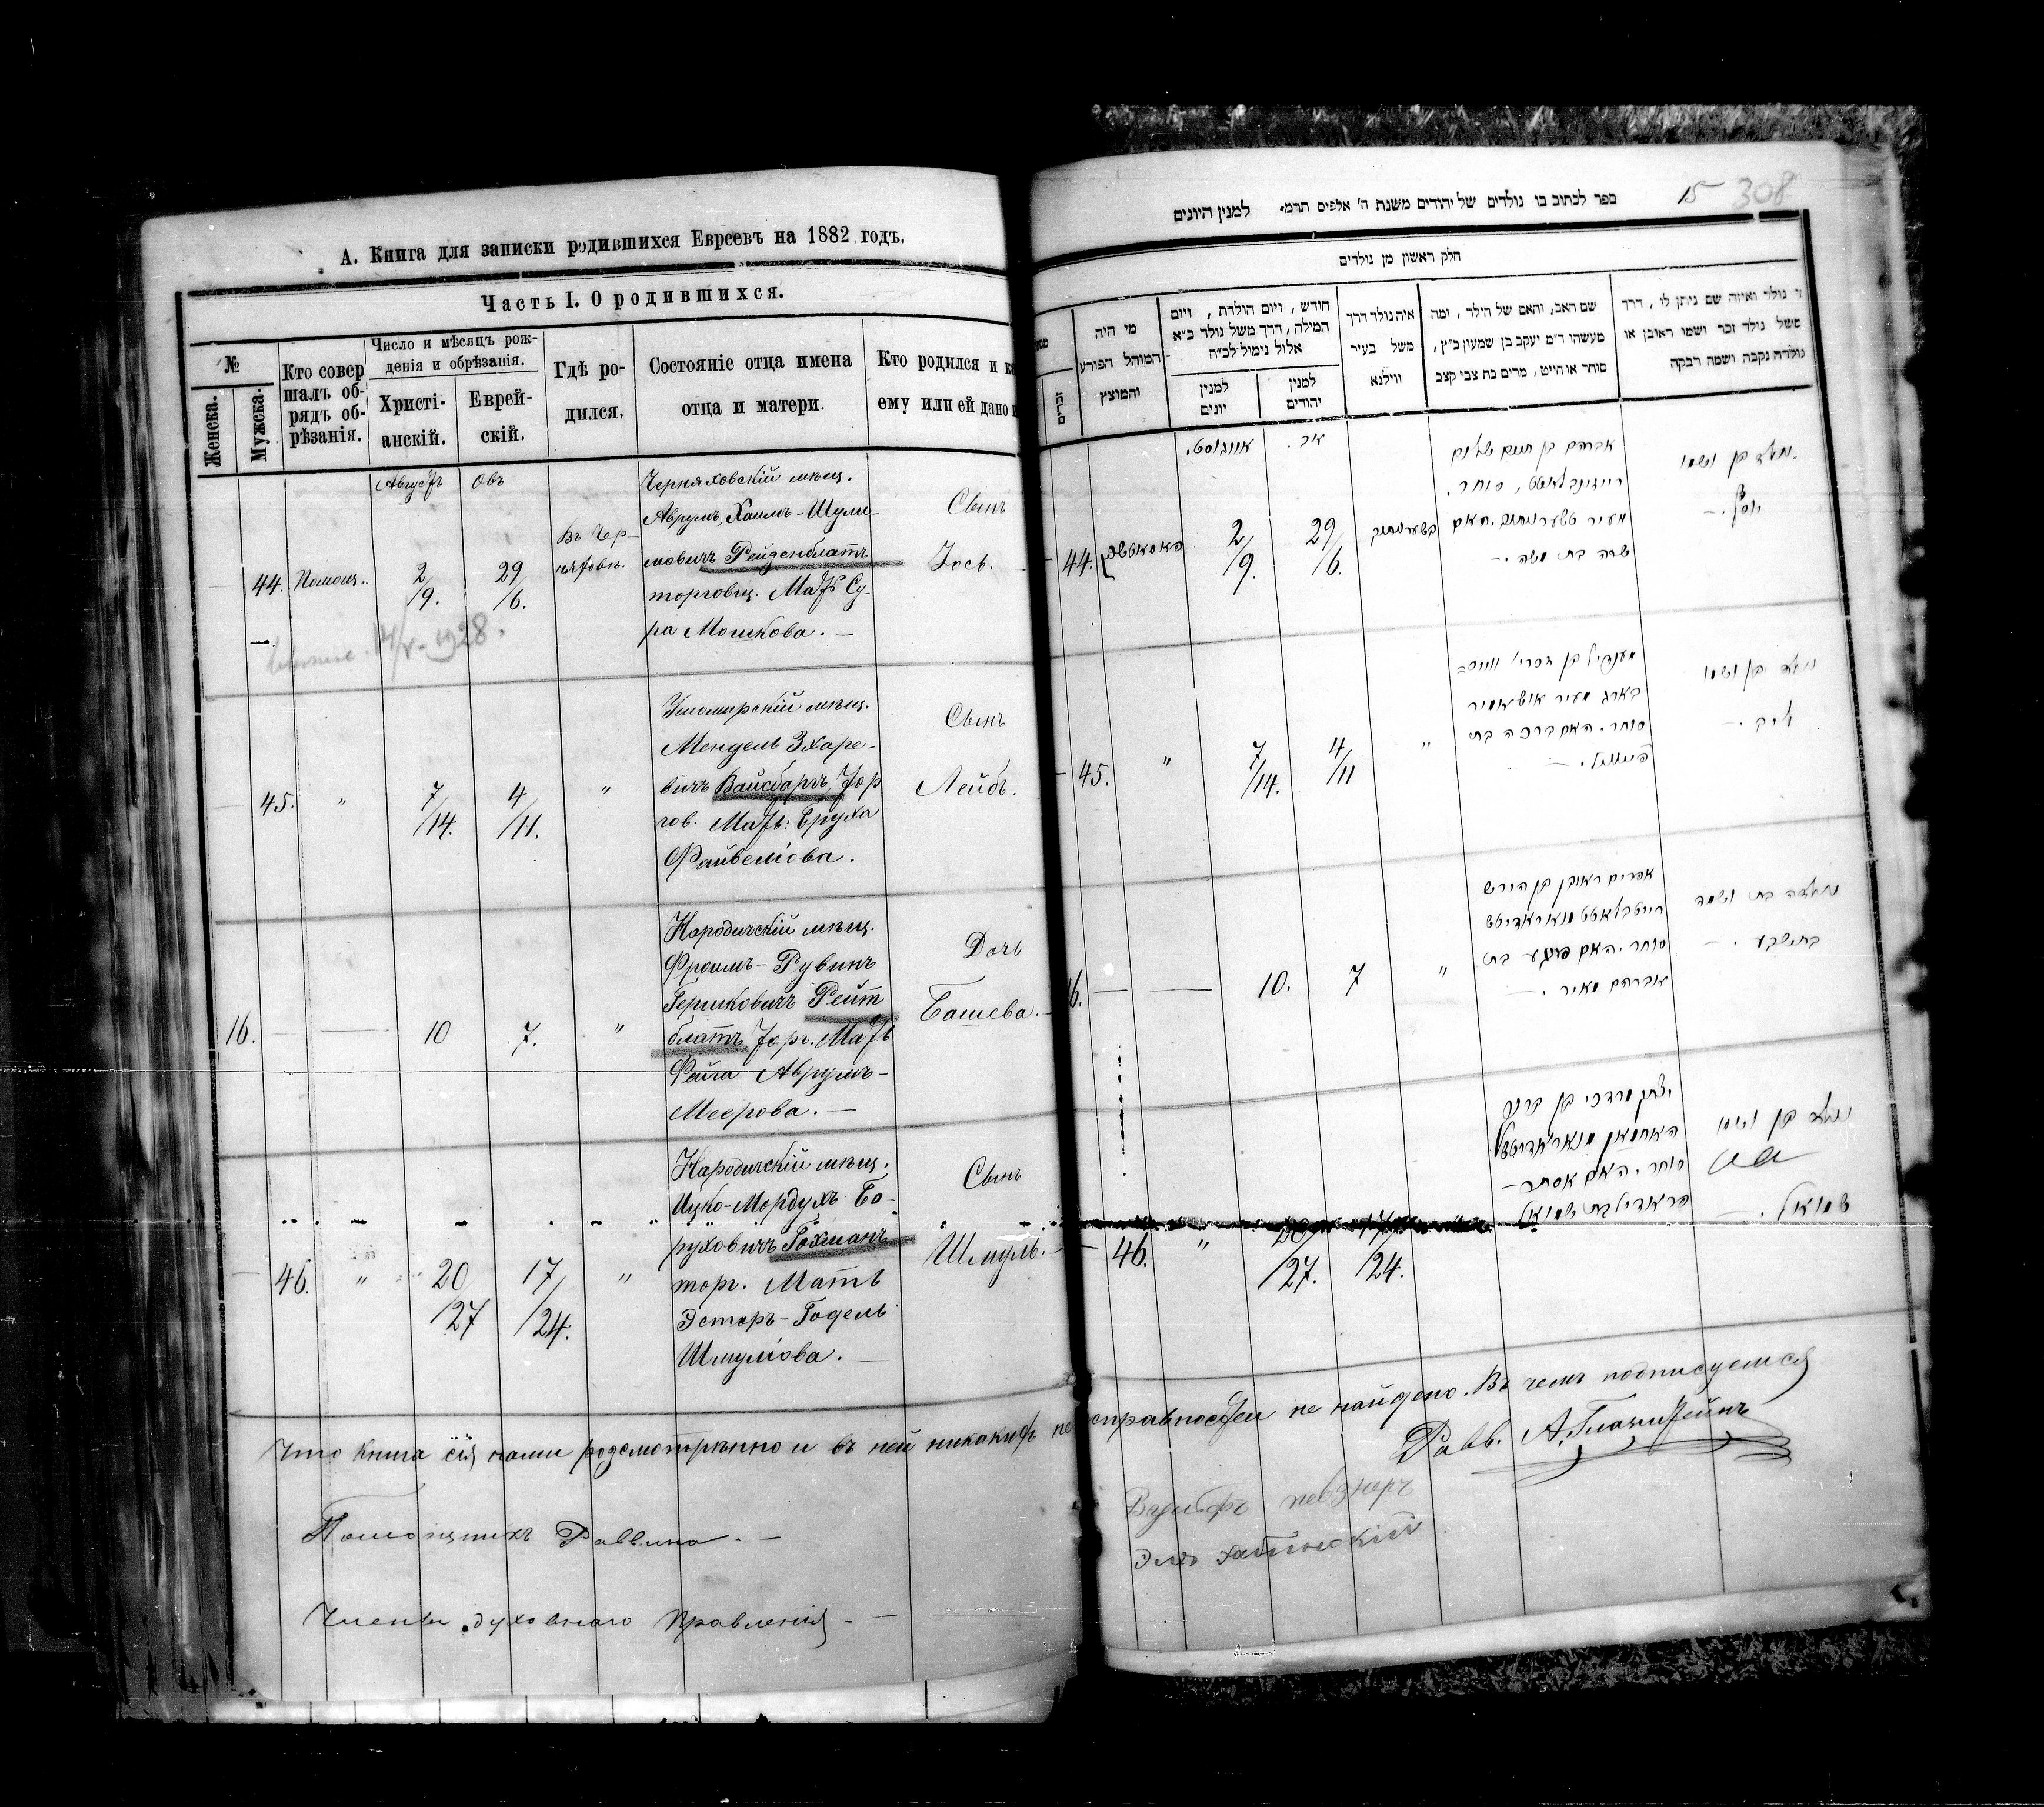 А. Книга для записки родившихся Евреевъ на 1882 годъ.
Часть I. О родившихся.
№
Женска.
Мужска.
Кто совер
шалъ об-
рядъ об-
рѣзанія.
Число и мѣсяцъ рож-
денія и обрѣзанія.
Христі-
анскій.
Еврей-
скій.
Гдѣ ро-
дился.
Состояніе отца имена
отца и матери.
Кто родился и
ему или ей дано
Августъ
Овъ
44.
Помощ.
2/9.
29/6.
Въ Чер-
няховѣ.
Черняховскій мѣщ.
Аврумъ, Хаимъ-Шули-
мовичъ Рейденблатъ
торговец. Мать Су-
ра Мошкова. —
Сынъ
Іось.
14/V-1928.
45.
"
7/14.
4/11.
"
Ушомирскій мѣщ.
Мендель Зхаре-
вичъ Вайсбаргъ, Тор
гов. Мать: Бруха
Файвелiова.
Сынъ
Лейбъ.
16.
—
10
7.
"
Народичскій мѣщ.
Фроимъ-Рувинъ
Гершковичъ Рейт
блатъ, Торг. Мать
Фейга Аврумъ-
Меерова. —
Дочь
Башева.
46.
"
20/27
17/24.
"
Народичскій мѣщ.
Ицко-Мордухъ Бо-
руховичъ Гохманъ
торг. Мать
Эстеръ-Годель
Шмулiова. —
Сынъ
Шмуль.
Что книга сія нами розсмотрѣнно и въ ней никакихъ неисправностей не найдено. Въ чемъ подписуемся
Помощникъ Раввина. —
Члены духовнаго Правленія —
15 308
ספר לכתוב בו נולדים של יהודים משנת ה' אלפים תרמ׳ למנין היונים
חלק ראשון מן נולדים
מי היה
המוהל הפורע
והמוצץ
חודש, ויום הולדת, ויום
המילה, דרך משל נולד כ״א
אלול נימול לכ״ח
למנין
יונים
למנין
יהודים
איה נולד דרך
משל בעיר
ווילנא
שם האב, והאם של הילד, ומה
מעשהו ד״מ יעקב בן שמעון כ״ץ,
סוחר או חייט, מרים בת צבי קצב
נולד ואיזה שם ניתן לו, דרך
משל נולד זכר ושמו ראובן או
נולדה נקבה ושמה רבקה
אויגוסט.
אב.
44.
2/9.
29/6.
אברהם בן חיים שלום
סוחר.
שרה בת משה. —
נולד בן ושמו
יוסף. —
45.
"
7/14.
4/11
"
סוחר. האם ברכה בת
נולד בן ושמו
ליב. —
16.
—
—
10.
7
"
אפרים ראובן בן הירש
סוחר. האם פייגע בת
אברהם מאיר. —
נולדה בת ושמה
בתשבע. —
46.
"
/27.
/24.
יצחק מרדכי בן ברוך
סוחר. האם אסתר-
נולד בן ושמו
שמואל. —
Равв.